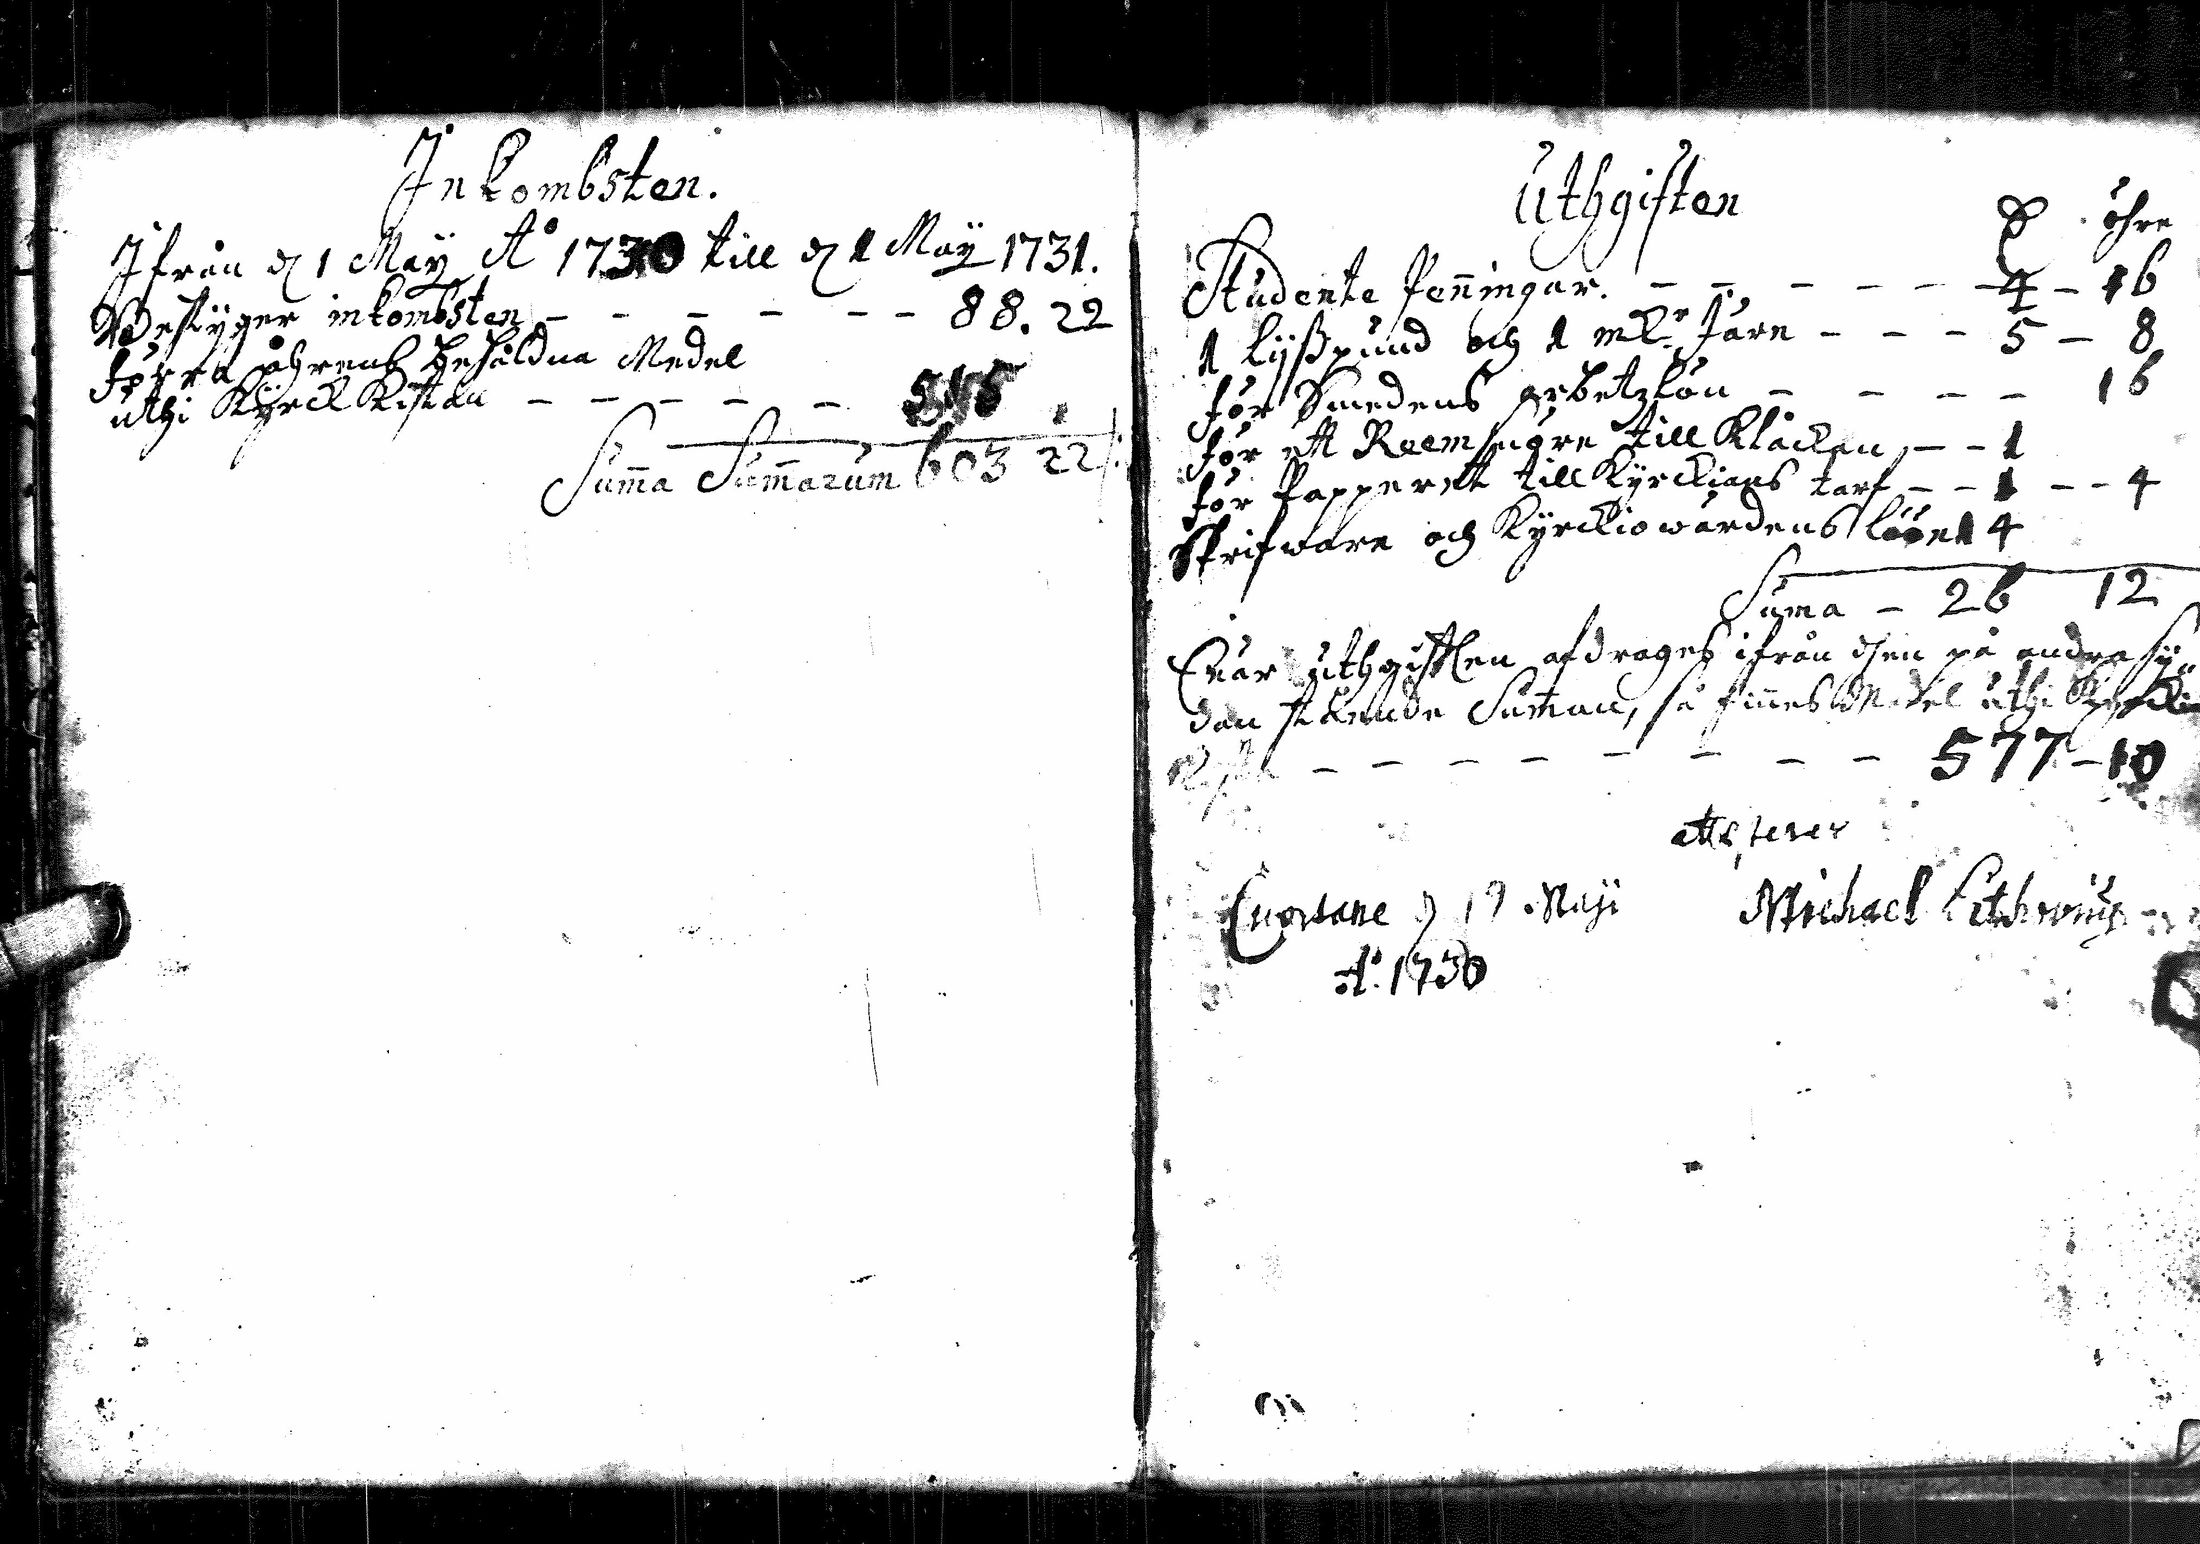 Inkombsten.
Ifrån d 1 May A° 1730 till d 1 May 1731.
Bestyger inkombsten - - - - - - 88. 22
förra åhrens behåldna Medel
uthi Kyrck Kistan - - - - - 515
Suma Sumarum 603 22
Uthgiften
öhre
Studente Penningar. - - - - - - 4 - 16
1 lyßpund och 1 mk Järn - - - 5 - 8
för Smedens arbetzlön - - - - 16
för ett Reem till Klåckan - - 1
för Papperet till Kyrckians tarf - - 1 - - 4
Skrifware och Kyrckiowärdens löön 14
Suma - 26 12
När uthgifften afdrages ifrån dhen på andra sy
dan stående Suman, så finnes Medel uthi Kyrckio
Kistan - - - - - - - - 577 - 10
attesterer
Cuortane d 19 Maji Michael Lithovius
A°. 1730